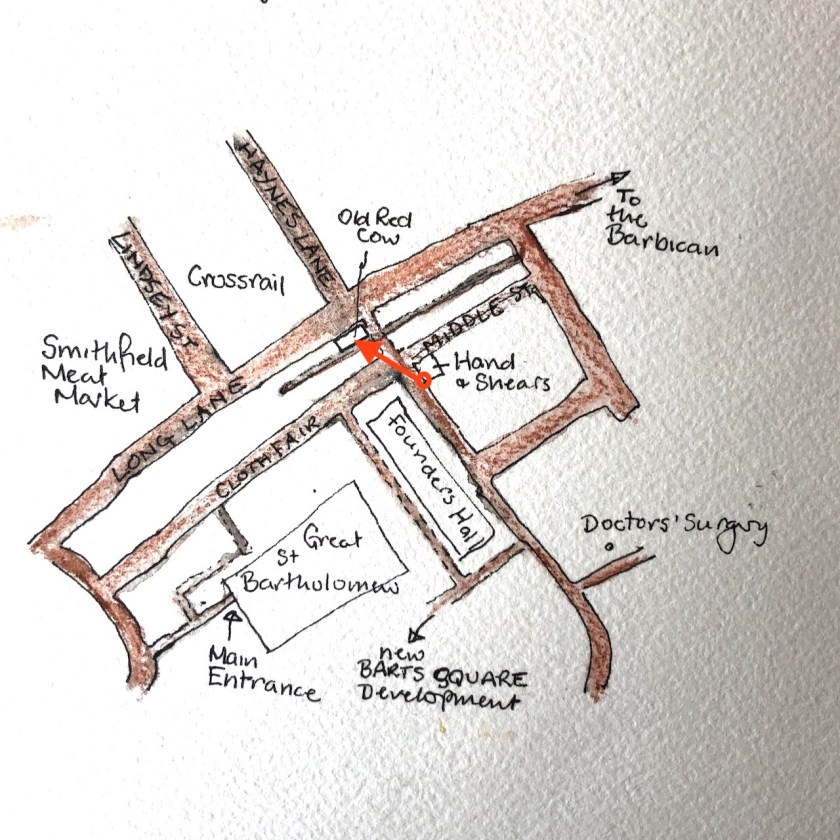 HAYNES LANE
To
the
Barbican
Old Red
Cow
LINDSEY ST
Crossrail
MIDDLE ST
Smithfield
Meat
Market
Hand
& Shears
LONG LANE
CLOTH FAIR
Founders Hall
Great
St
Bartholomew
Doctors' Surgery
Main
Entrance
new
BARTS SQUARE
Development